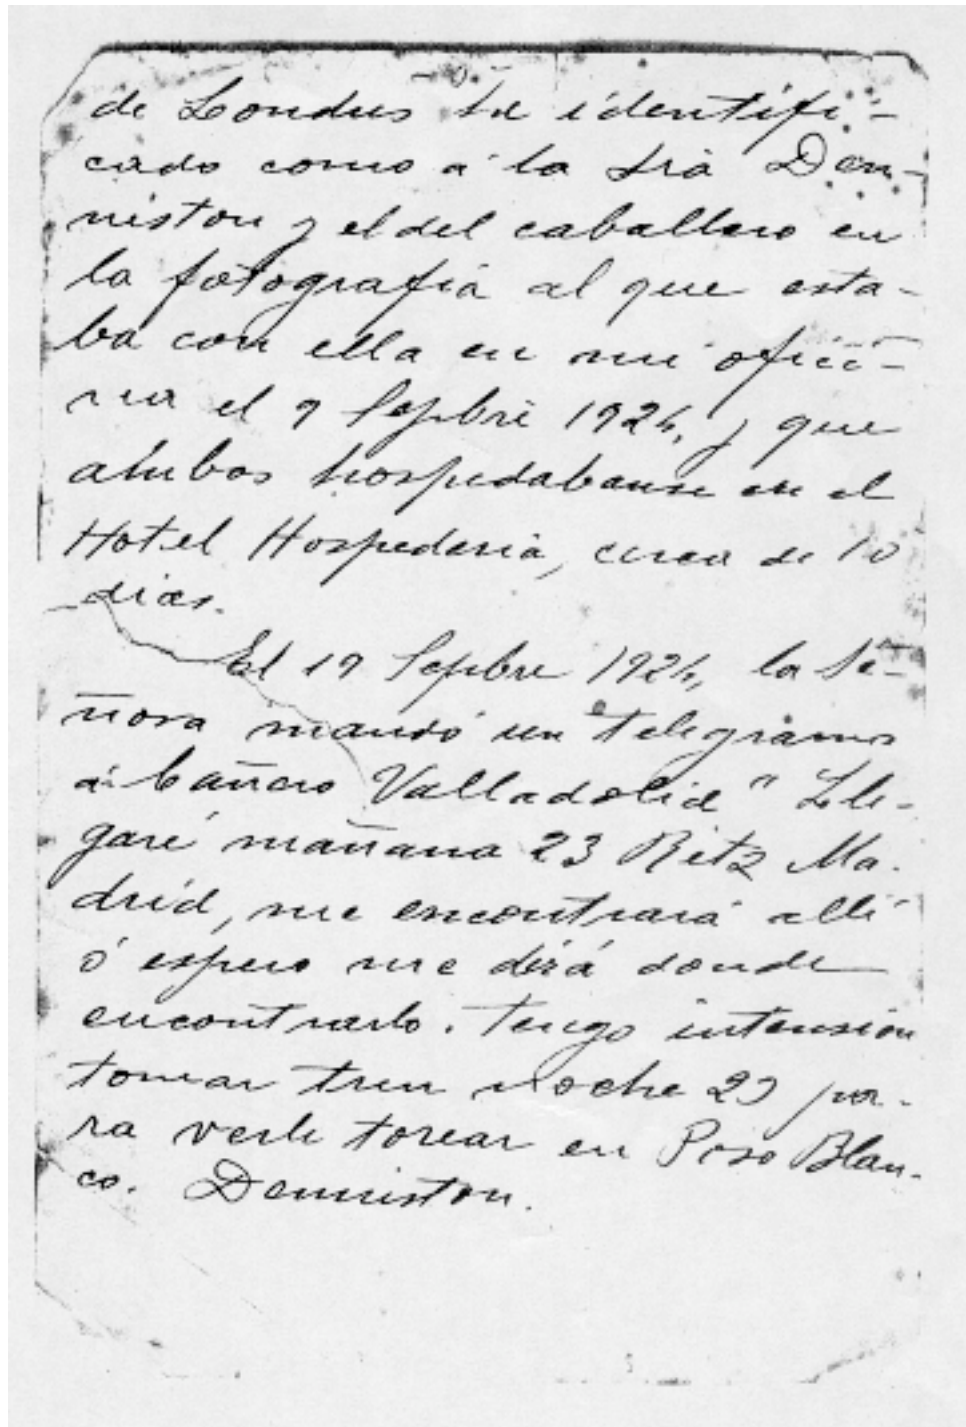 de Londres he identifi-
cado como á la Sra Den-
niston y el del caballero en
la fotografia al que esta-
ba con ella en mi ofici-
na el 9 Sepbre 1924, y que
ambos hospedabanse en el
Hotel Hospederia, cerca de 10
dias.
El 19 Sepbre 1924, la Se-
ñora mandó un telegrama
á Cañero Valladolid " Lle-
garé mañana 23 Ritz Ma-
drid, me encontrará alli
ó espero me dirá donde
encontrarlo. Tengo intension
tomar tren noche 23 pa-
ra verle torear en Blan-
co. Denniston.